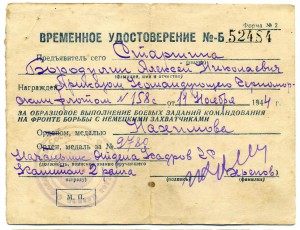 Форма № 2
ВРЕМЕННОЕ УДОСТОВЕРЕНИЕ №-Б 52484
Предъявитель сего Старшина
Бородулин Алексей Николаевич
(фамилия, имя и отчество)
Награжден Приказом Командующего
флотом № 158с от 19 Ноября 1944 г.
ЗА ОБРАЗЦОВОЕ ВЫПОЛНЕНИЕ БОЕВЫХ ЗАДАНИЙ КОМАНДОВАНИЯ
НА ФРОНТЕ БОРЬБЫ С НЕМЕЦКИМИ ЗАХВАТЧИКАМИ
Орденом, медалью Нахимова
Орден, медаль за № 9780
Начальник Отдела Кадров
Капитан 2 ранга
(подпись) (фамилия)
М. П.